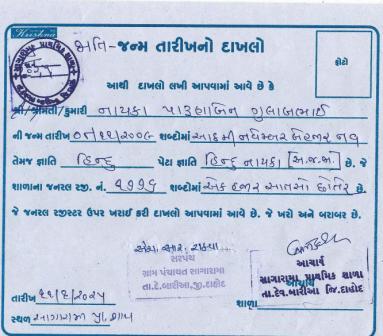 Krishna
જાતિ - જન્મ તારીખનો દાખલો
ફોટો
આથી દાખલો લખી આપવામાં આવે છે કે
શ્રી/શ્રીમતી/કુમારી નાયકા પારૂલબેન ગુલાબભાઈ
ની જન્મ તારીખ ૦૮/૧૧/૨૦૦૯ શબ્દોમાં આઠમી નવેમ્બર બેહજાર નવ
તેમજ જ્ઞાતિ હિન્દુ પેટા જ્ઞાતિ હિન્દુ નાયકા [અ.જ.જા] છે. જે
શાળાના જનરલ રજી. નં. ૧૭૭૬ શબ્દોમાં એક હજાર સાતસો છોતેર છે.
જે જનરલ રજીસ્ટર ઉપર ખરાઈ કરી દાખલો આપવામાં આવે છે. જે ખરો અને બરાબર છે.
સરપંચ
ગ્રામ પંચાયત સાગારામા
તા.દે.બારીઆ,જી.દાહોદ
આચાર્ય
આચાર્ય
સાગારામા પ્રાથમિક શાળા
તા.દેવ.બારીઆ જિ.દાહોદ
શાળા
તારીખ
સ્થળ સાગારામા પ્રા. શાળા